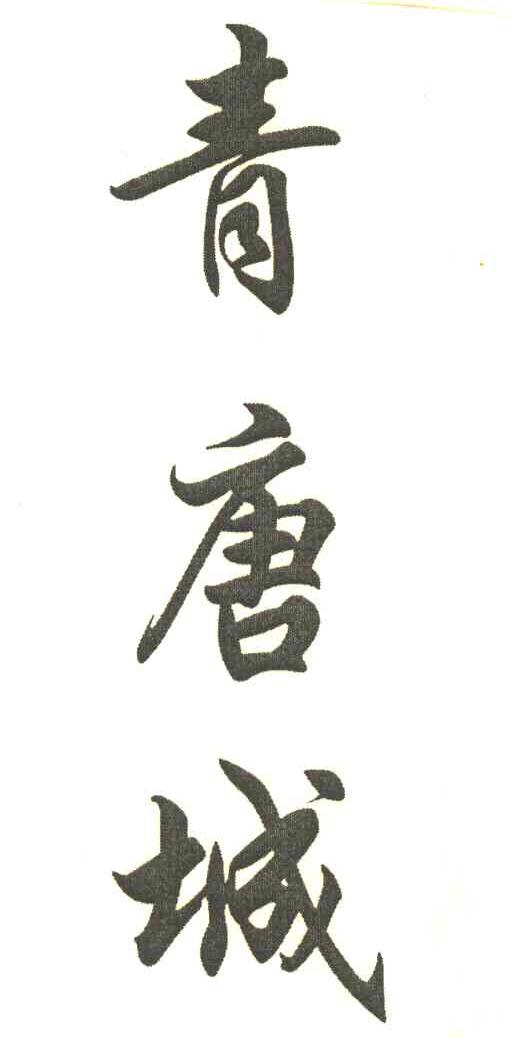 青唐城